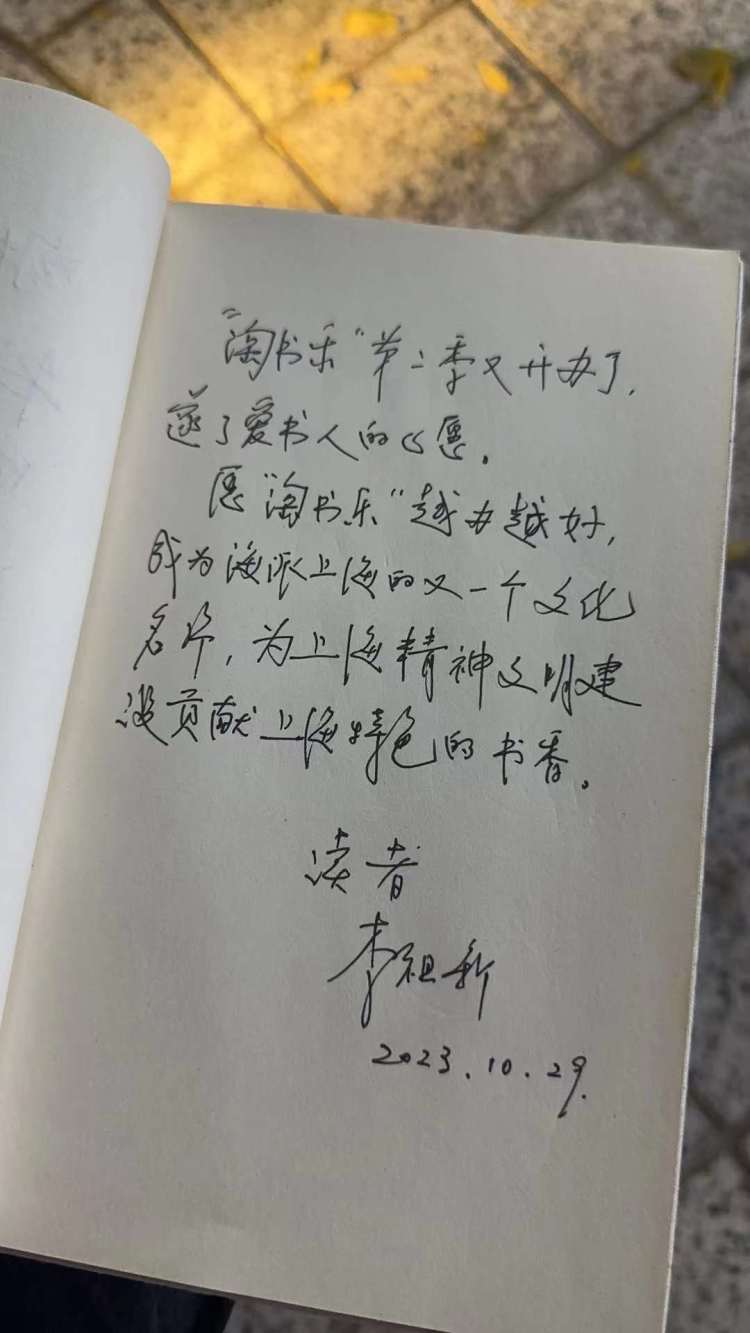 “淘书乐”第二季又开办了，
遂了爱书人的心愿。
愿“淘书乐”越办越好，
成为海派上海的又一个文化
名片，为上海精神文明建
设贡献上海特色的书香。
读者
李祖新
2023.10.29.